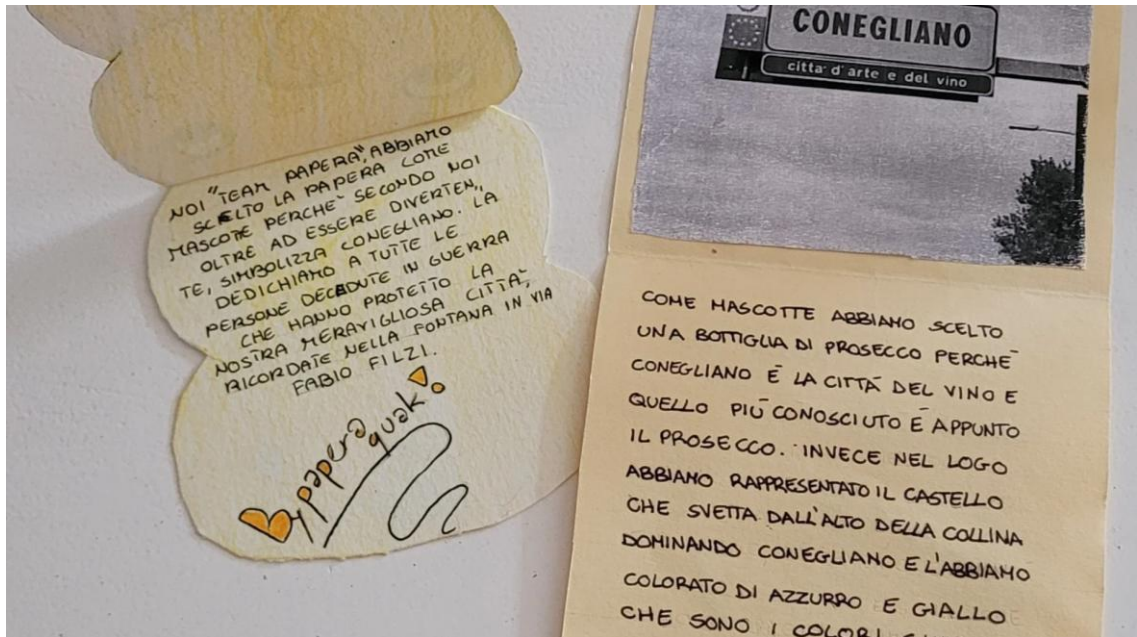 NOI "TEAM PAPERA", ABBIAMO
SCELTO LA PAPERA COME
MASCOTE PERCHE' SECONDO NOI
OLTRE AD ESSERE DIVERTEN,,
TE, SIMBOLIZZA CONEGLIANO. LA
DEDICHIAMO A TUTTE LE
PERSONE DECEDUTE IN GUERRA
CHE HANNO PROTETTO LA
NOSTRA MERAVIGLIOSA CITTA',
RICORDATE NELLA FONTANA IN VIA
FABIO FILZI.
by papera
quak!
CONEGLIANO
citta' d'arte e del vino
COME MASCOTTE ABBIAMO SCELTO
UNA BOTTIGLIA DI PROSECCO PERCHÉ
CONEGLIANO É LA CITTÁ DEL VINO E
QUELLO PIÚ CONOSCIUTO É APPUNTO
IL PROSECCO. INVECE NEL LOGO
ABBIAMO RAPPRESENTATO IL CASTELLO
CHE SVETTA DALL'ALTO DELLA COLLINA
DOMINANDO CONEGLIANO E L'ABBIAMO
COLORATO DI AZZURRO E GIALLO
CHE SONO I COLORI